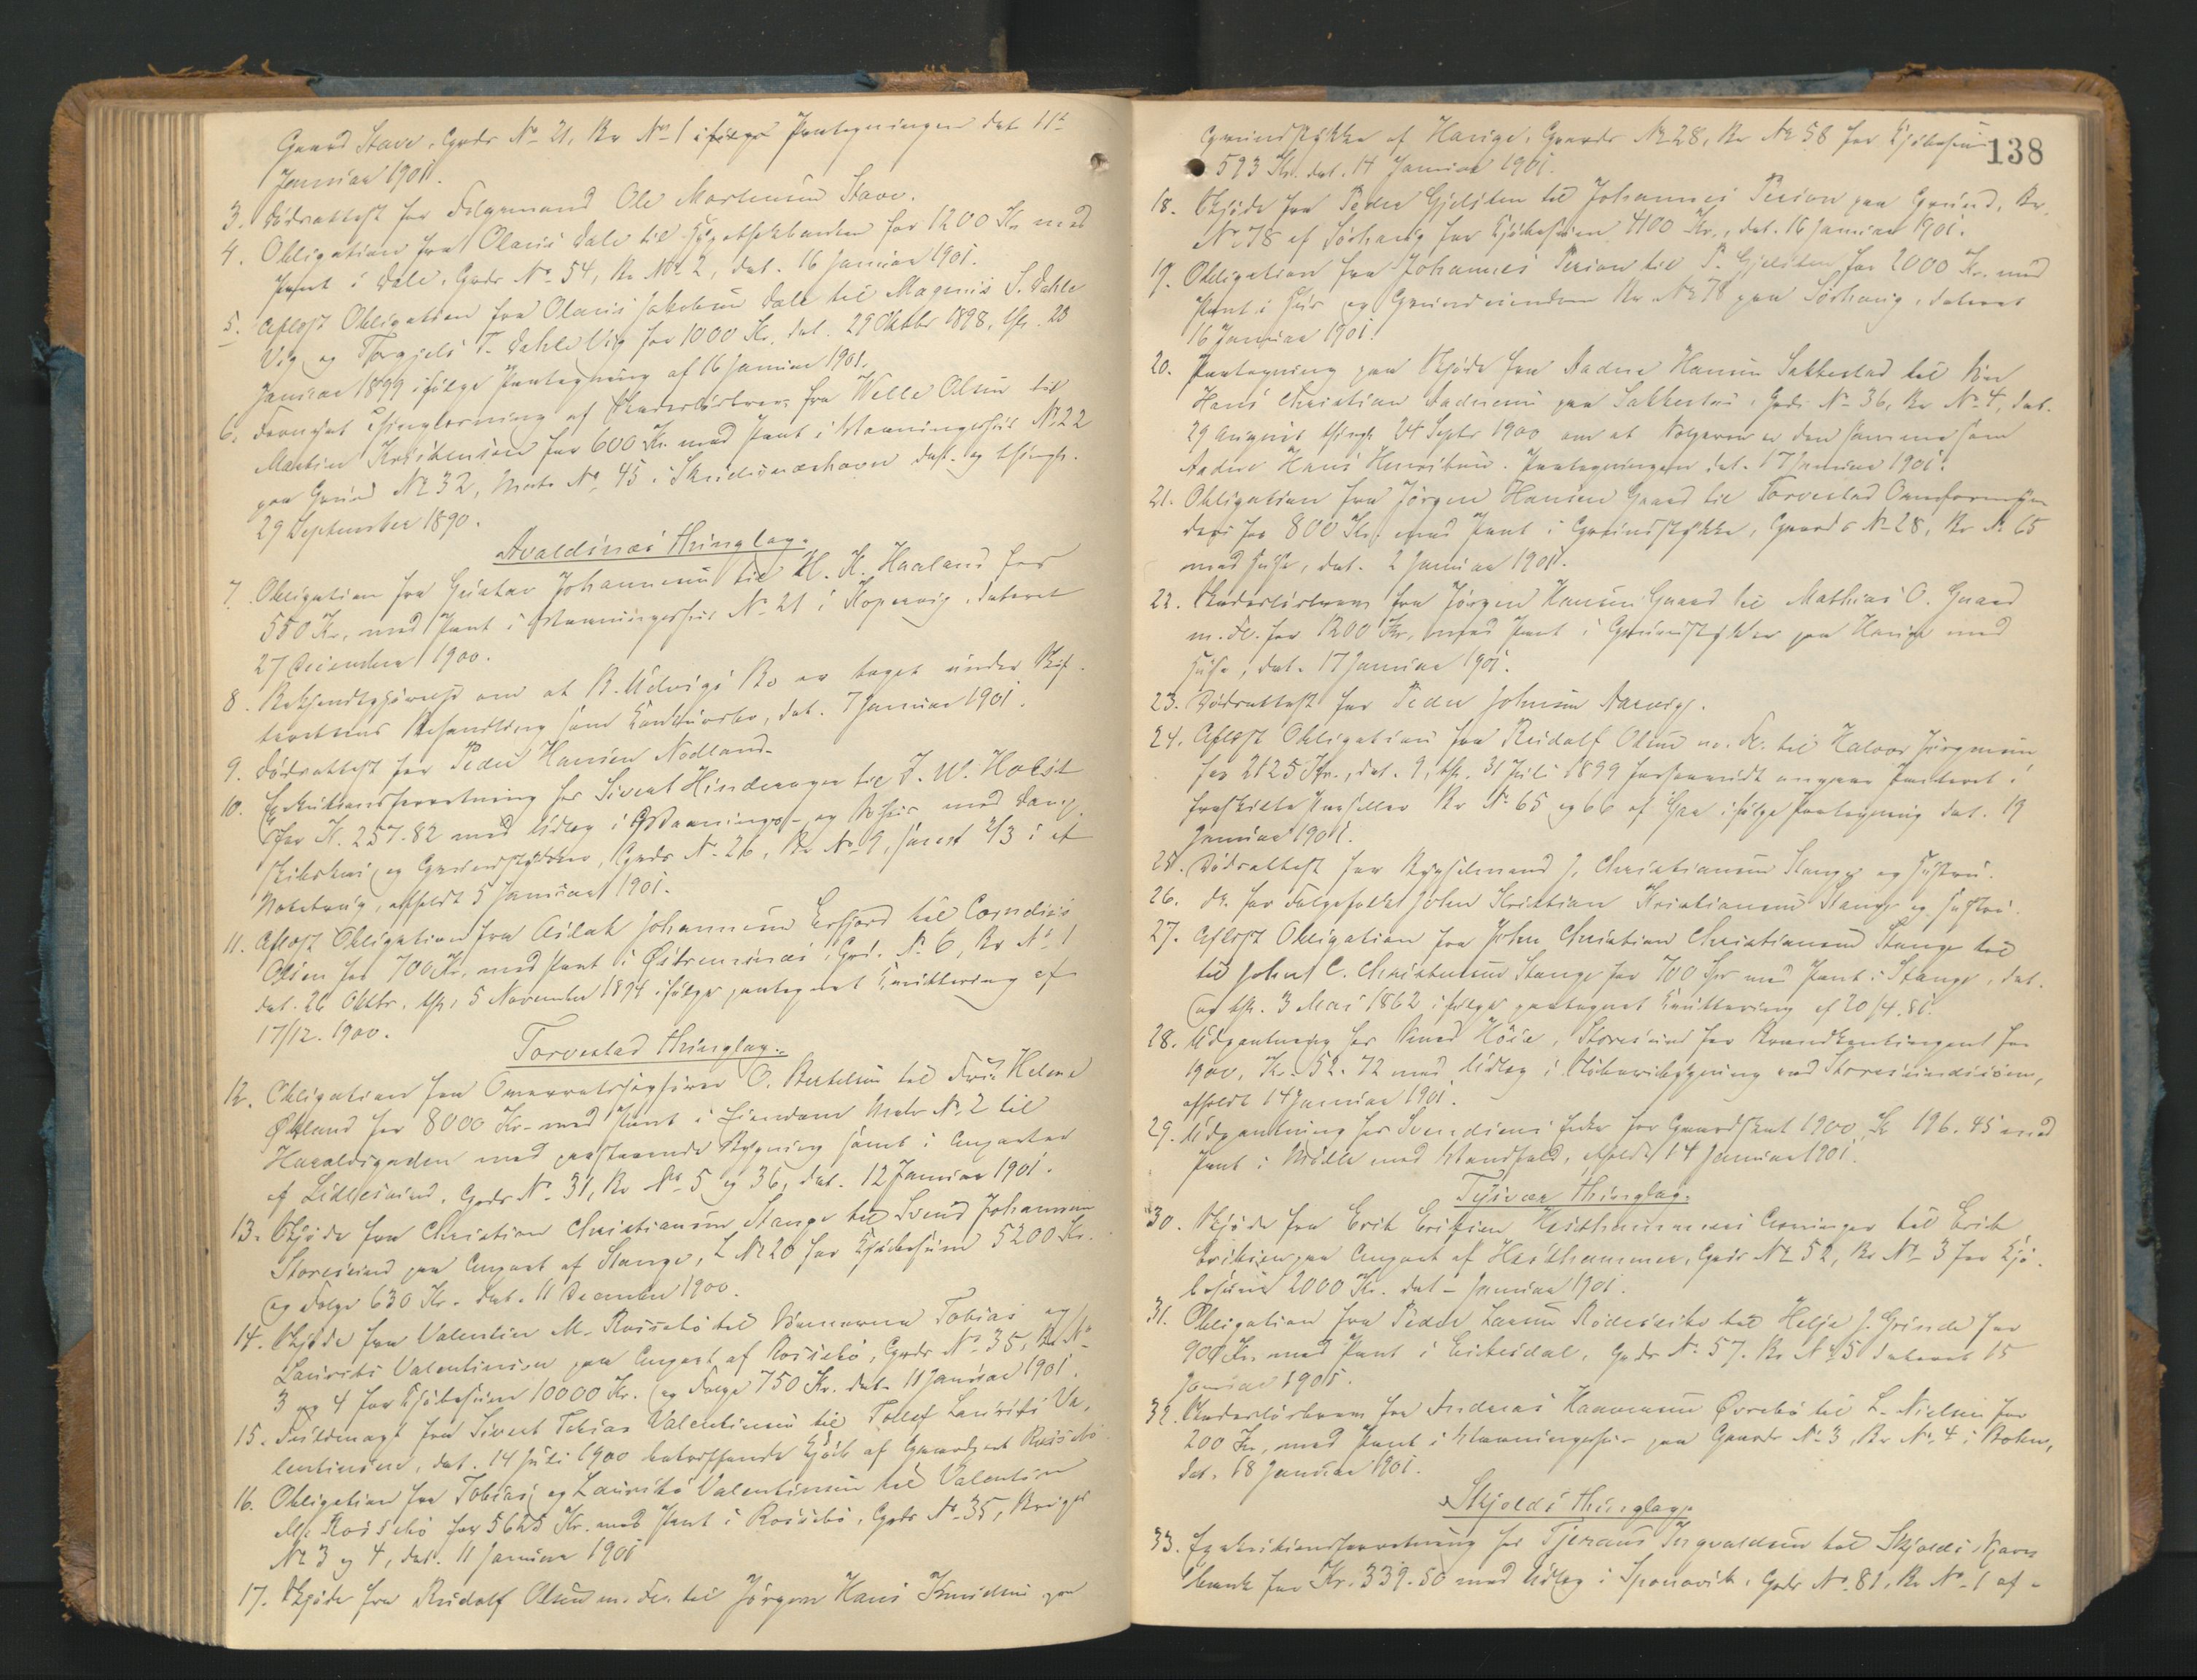 Gaard Stave, Gards No 21, Br No 1 ifølge Paategningen dat 11te
Januar 1901.
3. Dødsattest for Folgemand Ole Mortensen Stave.
4. Obligation fra Olaus Dale til Hypothekbanken for 1200 Kr med
Pant i Dale, Gards No 54, Br No 2, dat. 16 Januar 1901.
5. Aflyst Obligation fra Olaus Jakobsen Dale til Magnus S. Dahle
Vig og Torgjels T. Dahle Vig for 1000 Kr. dat. 29 Oktbr 1898, thl. 23
Januar 1899 ifølge Paategning af 16 Januar 1901.
6. Fornyet Thinglæsning af Skadesløsbrev fra Welle Olsen til
Martin Kristensen for 600 Kr. med Pant i Vaaningshus No 22
paa Grund No 32, Matr No 45 i Skudesneshavn dat. og thingl.
29 September 1890.
Avaldsnæs Thinglag.
7. Obligation fra Gustav Johannesen til H. H. Haaland for
550 Kr, med Pant i Vaaningshus No 21 i Kopervig, dateret
27 December 1900.
8. Bekjendtgjørelse om at B. Udvigs Bo er taget under Skif-
terettens Behandling som Konkursbo, dat. 7 Januar 1901.
9. Dødsattest for Peder Hansen Nodland.
10. Exekutionsforretning hos Sivert Hinderager til J. W. Holst
for Kr. 257.82 med Udlæg i Vaanings- og Søhus med
og Grundstykker, Gards No 26, Br No 9, samt 2/3 i et
Notebrug, afholdt 5 Januar 1901.
11. Aflyst Obligation fra Aslak Johannesen Erfjord til Cornelius
Olsen for 700 Kr, med Pant i Østremsnæs, Grd. No 6, Br No 1
dat. 26 Oktbr. thl. 5 November 1894 ifølge paategnet Kvittering af
17/12. 1900.
Torvestad Thinglag.
12. Obligation fra Overretssagfører O. Bertelsen til Fru Helene
Økland for 8000 Kr. med Pant i Eiendom Matr No 2 til
Haraldsgaden med paastaaende Bygning samt i Anparter
af Lillesund, Gards No 31, Br No 5 og 36, dat. 12 Januar 1901.
13. Skjøde fra Christian Christiansen Stange til Svend Johannesen
Storesund paa Anpart af Stange, L No 20 for Kjøbesum 5200 Kr.
og Folge 630 Kr. dat. 11 December 1900.
14. Skjøde fra Valentin M. Rossebø til Sønnerne Tobias og
Laurits Valentinsen paa Anpart af Rossebø, Gards No 35, Br No
3 og 4 for Kjøbesum 10000 Kr. og Folge 750 Kr. dat. 11 Januar 1901.
15. Fuldmagt fra Sivert Tobias Valentinsen til Tollef Laurits Va-
lentinsen, dat. 14 Juli 1900 betræffende Kjøb af Gaardpart Rossebø
16. Obligation fra Tobias og Laurits Valentinsen til Valentin
M. Rossebø for 5625 Kr. med Pant i Rossebø, Gards No 35, Brugs
No 3 og 4, dat. 11 Januar 1901
17. Skjøde fra Rudolf Olsen m. Fl. til Jørgen Hans Knudsen paa
138
Grundstykke af Hauge, Gaards No 28, Br No 58 for Kjøbesum
593 Kr. dat. 14 Januar 1901.
18. Skjøde fra Peder Gjelsten til Johannes Person paa Grund, Br
No 78 af Sørhaug for Kjøbesum 4100 Kr., dat. 16 Januar 1901.
19. Obligation fra Johannes Person til P. Gjelsten for 2000 Kr. med
Pant i Hus og Grundeiendom Br No 78 paa Sørhaug, dateret
16 Januar 1901.
20. Paategning paa Skjøde fra Aadne Hansen Sakkestad til Søn
Hans Christian Aadnesen paa Sakkestad, Gards No 36, Br No 4, dat.
29 August thingl. 24 Septr 1900 om at Sælgeren er den samme som
Aadne Hans Henriksen. Paategningen dat. 17 Januar 1901.
21. Obligation fra Jørgen Hansen Gaard til Torvestad Overformyn-
deri for 800 Kr. med Pant i Grundstykke, Gaards No 28, Br No 65
med Huse, dat. 2 Januar 1901.
22. Skadesløsbrev fra Jørgen Hansen Gaard til Mathias O. Gaard
m. Fl. for 1200 Kr, med Pant i Grundstykker paa Hauge med
Huse, dat. 17 Januar 1901.
23. Dødsattest for Peder Johnsen Aarvig.
24. Aflyst Obligation fra Rudolf Olsen m. Fl. til Halvor Jørgensen
for 2125 Kr., dat. 9, thl. 31 Juli 1899 forsaavidt angaar Panteret i
fraskilte Parseller Br No 65 og 66 af Gaa ifølge Paategning dat. 19
Januar 1901.
25. Dødsattest for Bygselmand J. Christiansen Stange og Hustru.
26. do. for Folgefolk John Kristian Kristiansen Stange og Hustru.
27. Aflyst Obligation fra John Christian Christiansen Stange til
til John C. Christensen Stange for 700 Spd med Pant i Stange, dat.
og thl. 3 Mai 1862 ifølge paategnet Kvittering af 20/4.81.
28. Udpantning hos Knud Høie, Storesund for Brandkontingent for
1900, Kr. 52.72 med Udlæg i Bøkeribygning ved Storesund,
afholdt 14 Januar 1901.
29. Udpantning hos Svendsens Enke for Gaardskat 1900, Kr 196.45 med
Pant i Mølle med Vandfald, afholdt 14 Januar 1901.
Tysvær Thinglag.
30. Skjøde fra Erik Eriksen Hesthammers Arvinger til Erik
Eriksen paa Anpart af Hesthammer, Gards No 52, Br No 3 for Kjø-
besum 2000 Kr. dat – Januar 1901.
31. Obligation fra Peder Larsen til Helje J. Grinde for
900 Kr. med Pant i Eikesdal, Gards No 57, Br No 5 dateret 15
Januar 1901.
32. Skadesløsbrev fra Andreas Haavesen Øvrebø til L. Nielsen for
200 Kr, med Pant i Vaaningshus paa Gaards No 3, Br No 4 i Bokn,
dat. 18 Januar 1901.
Skjolds Thinglag.
33. Exekutionsforretning hos Tjerans Ingvaldsen til Skjolds Spare-
bank for Kr. 339.50 med Udlæg i Sponavik, Gards No 81, Br No 1 af-